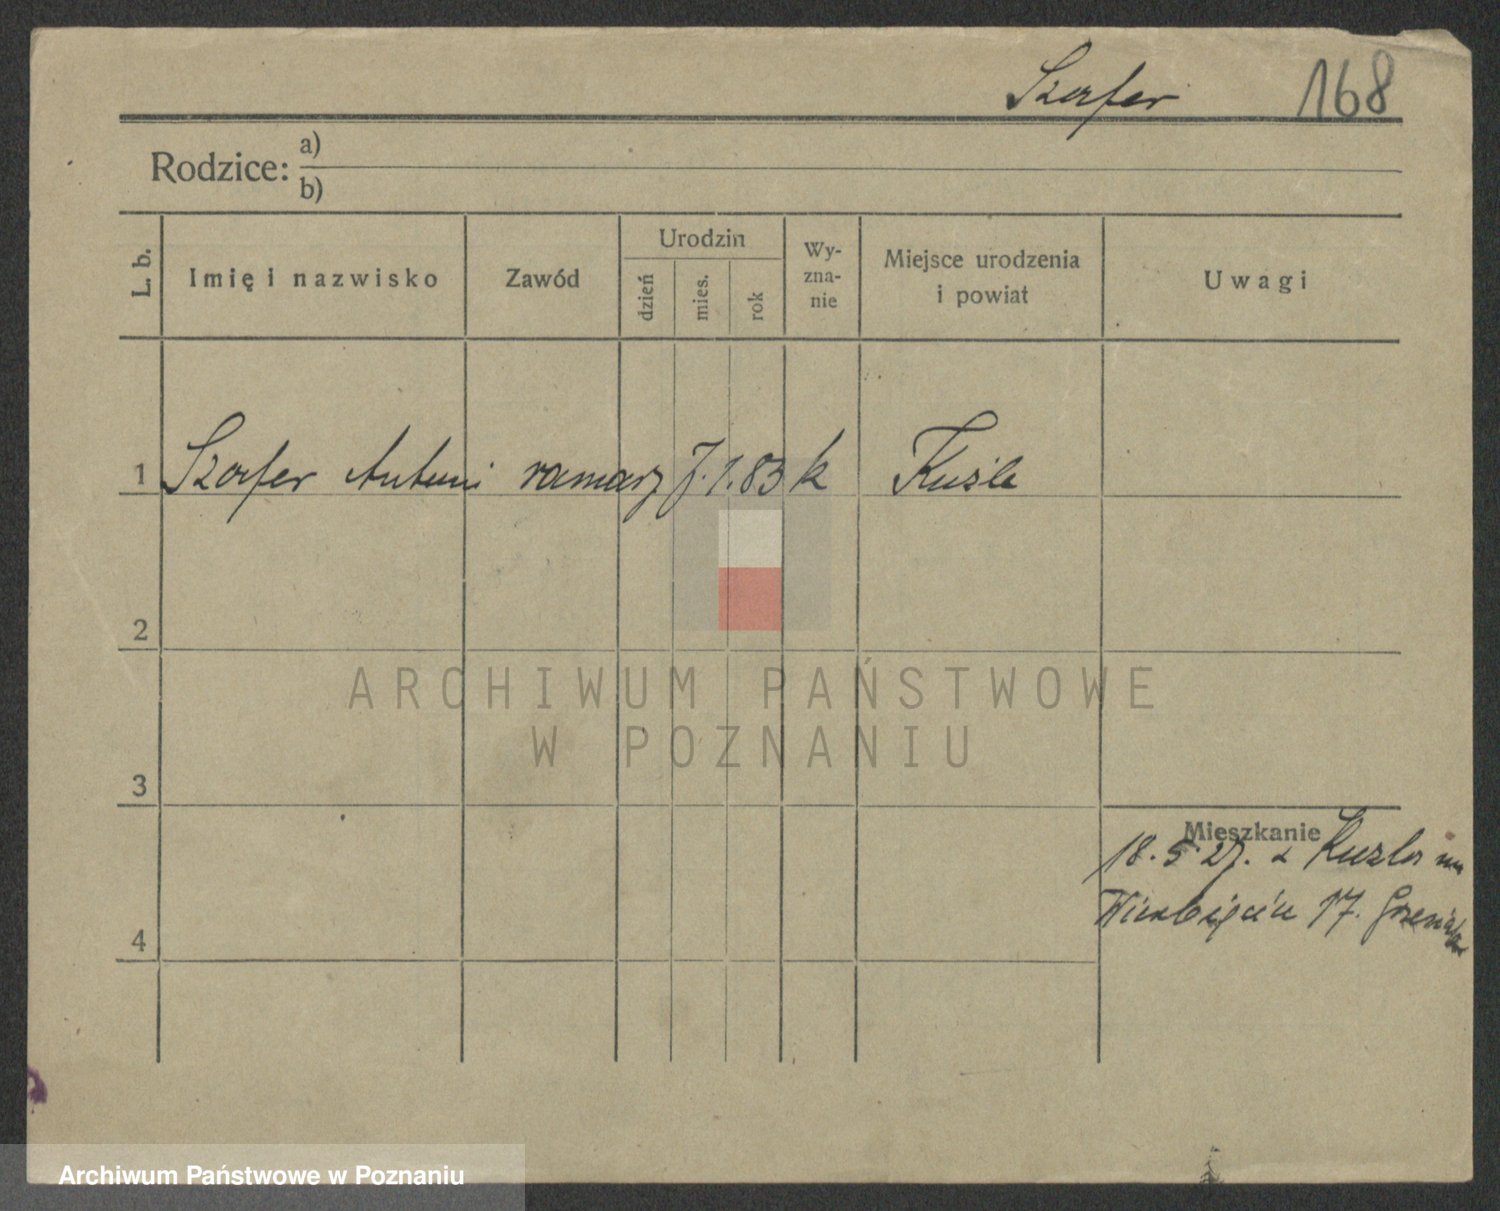 Szorfer 168
Rodzice: a)
b)
L. b.
Imię i nazwisko
Zawód
Urodzin
dzień
mies.
rok
Wy-
zna-
nie
Miejsce urodzenia
i powiat
Uwagi
1 Szorfer Antoni ramarz 7. 1. 83 k Kuźle
2
3
4
Mieszkanie
18. 5. 27. z
17.
ARCHIWUM PAŃSTWOWE
W POZNANIU
Archiwum Państwowe w Poznaniu